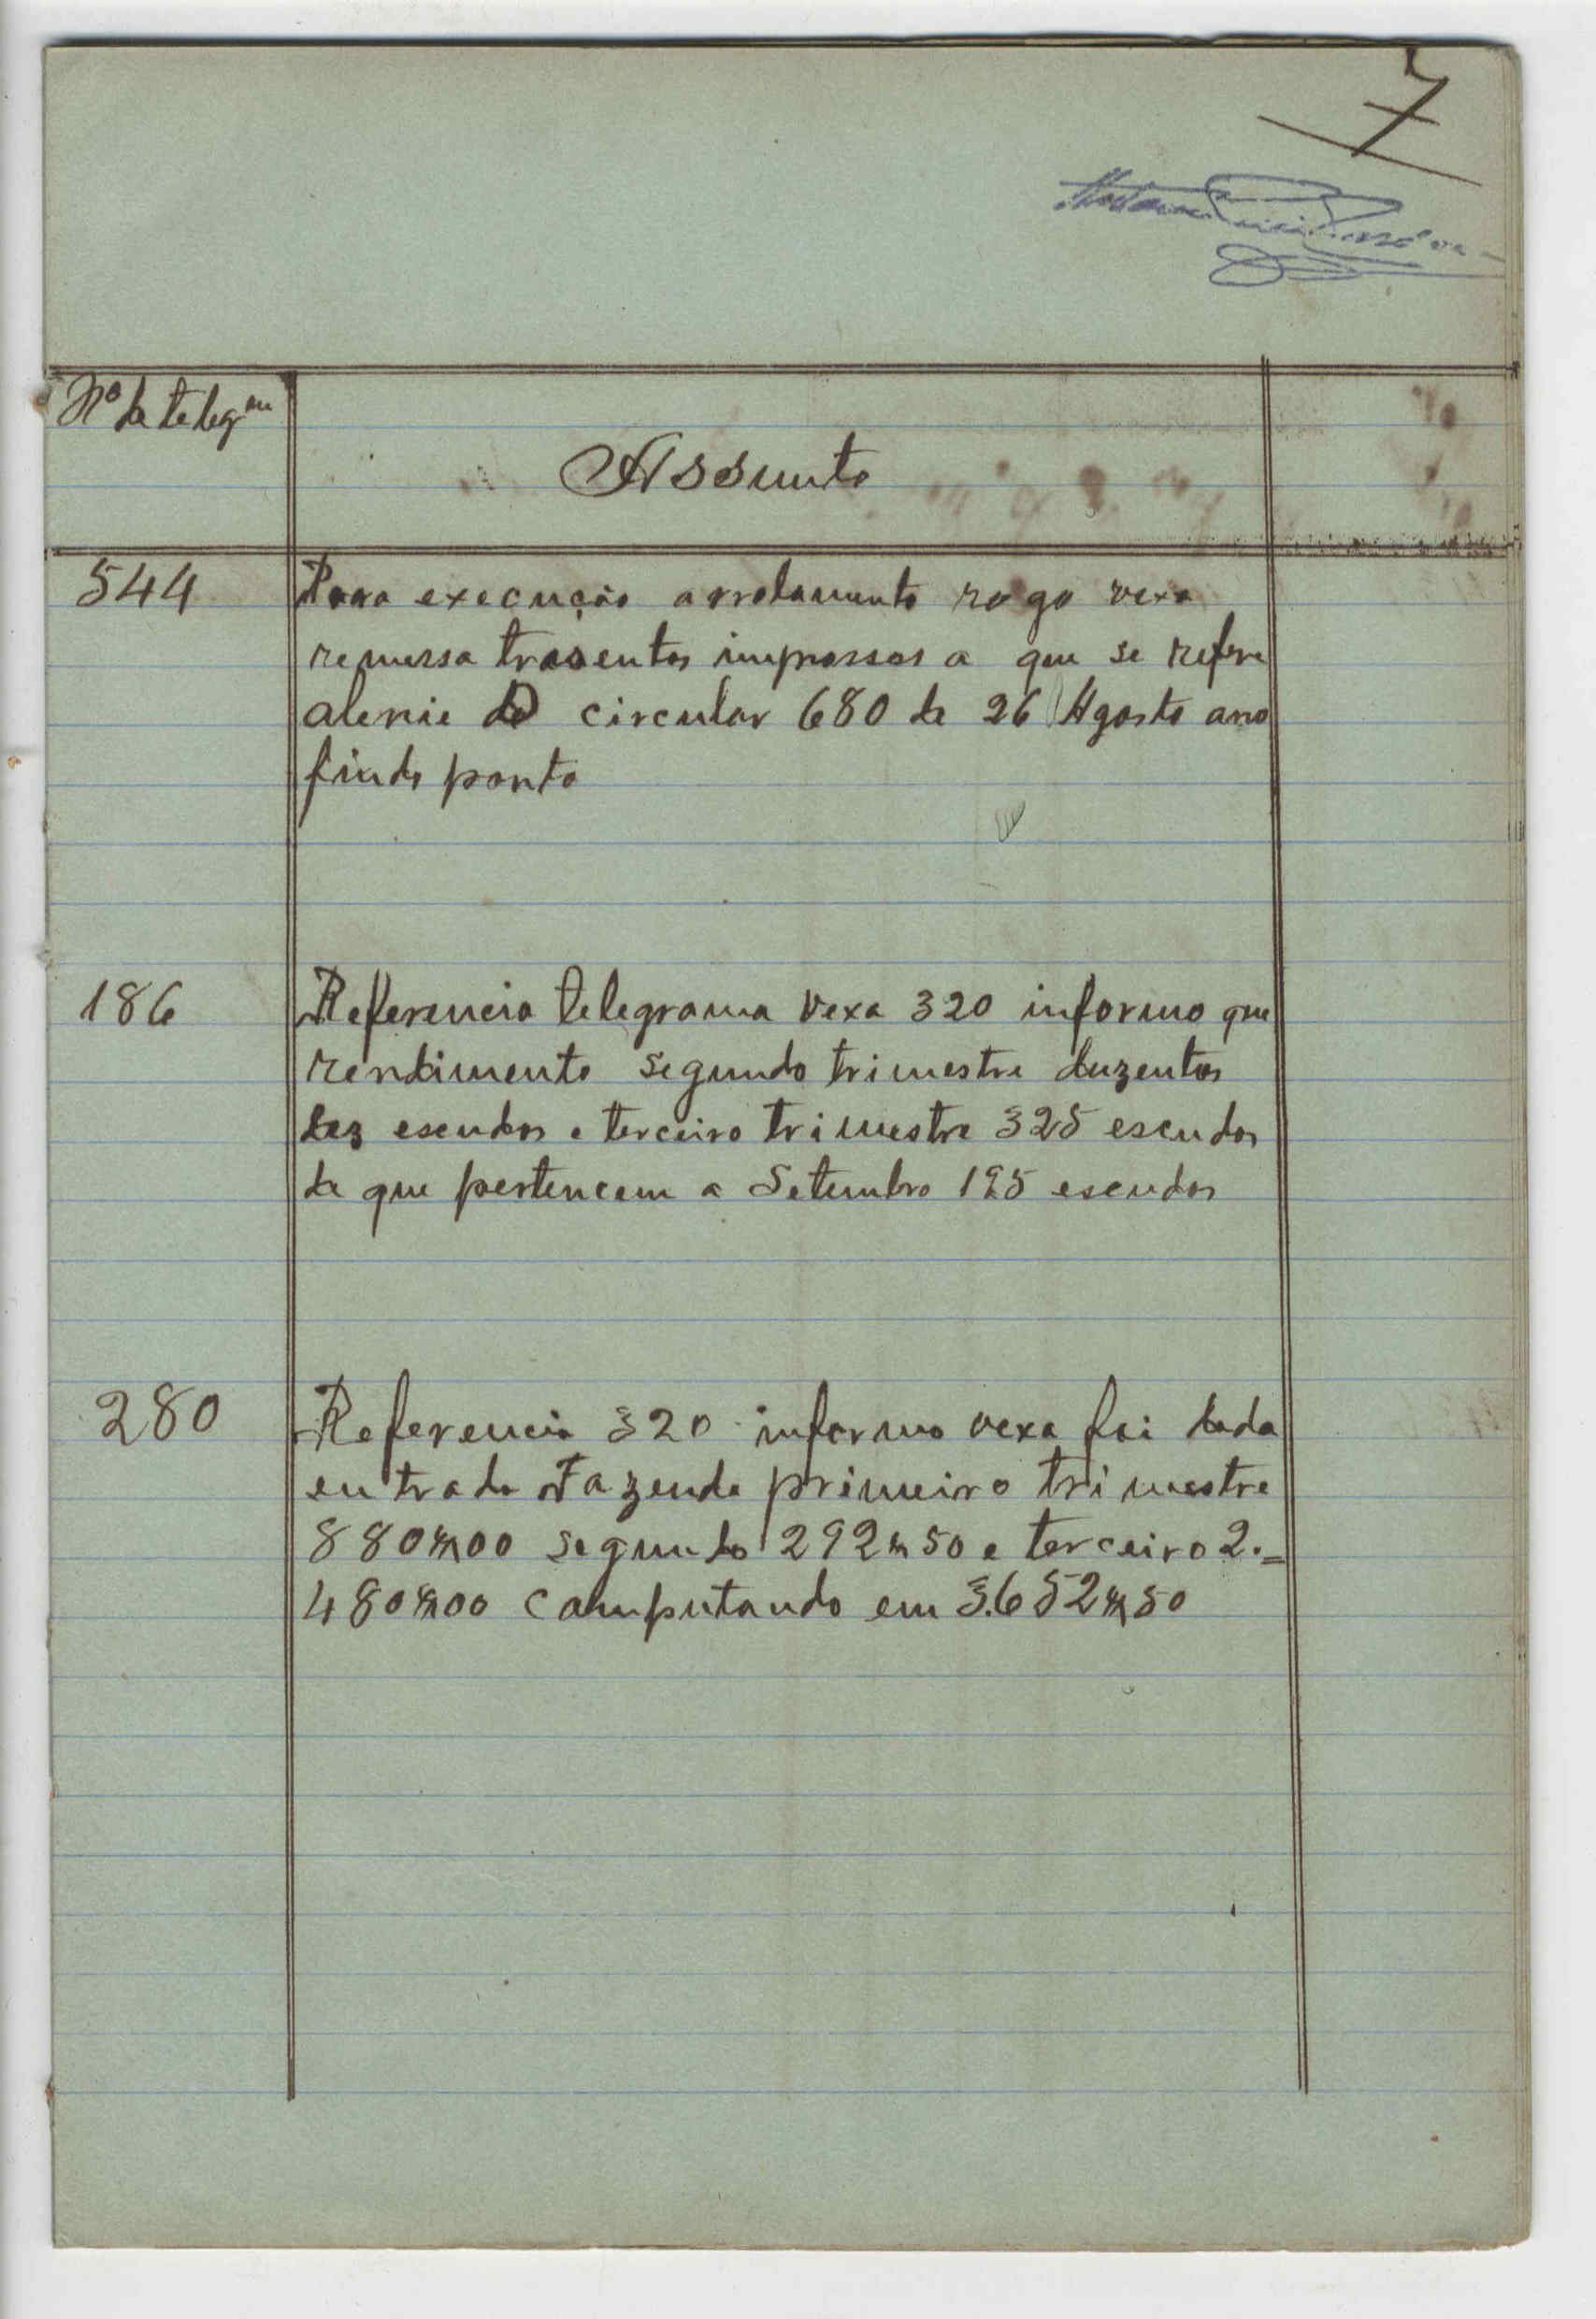 7
Nº de telegma
Assunto
544
Para execução arrolamento rogo vexa
remessa trasentos impressos a que se refere
alenie D circular 680 de 26 Agosto ano
findo ponto
186
Referencia telegrama vexa 320 informo que
rendimento segundo trimestre duzentos
dez escudos e terceiro trimestre 325 escudos
de que pertencem a Setembro 195 escudos
280
Referencia 320 informo vexa foi dada
entrada Fazenda primeiro trimestre
880$00 segundo 292$50 e terceiro 2.=
480$00 computando em 3.652$50